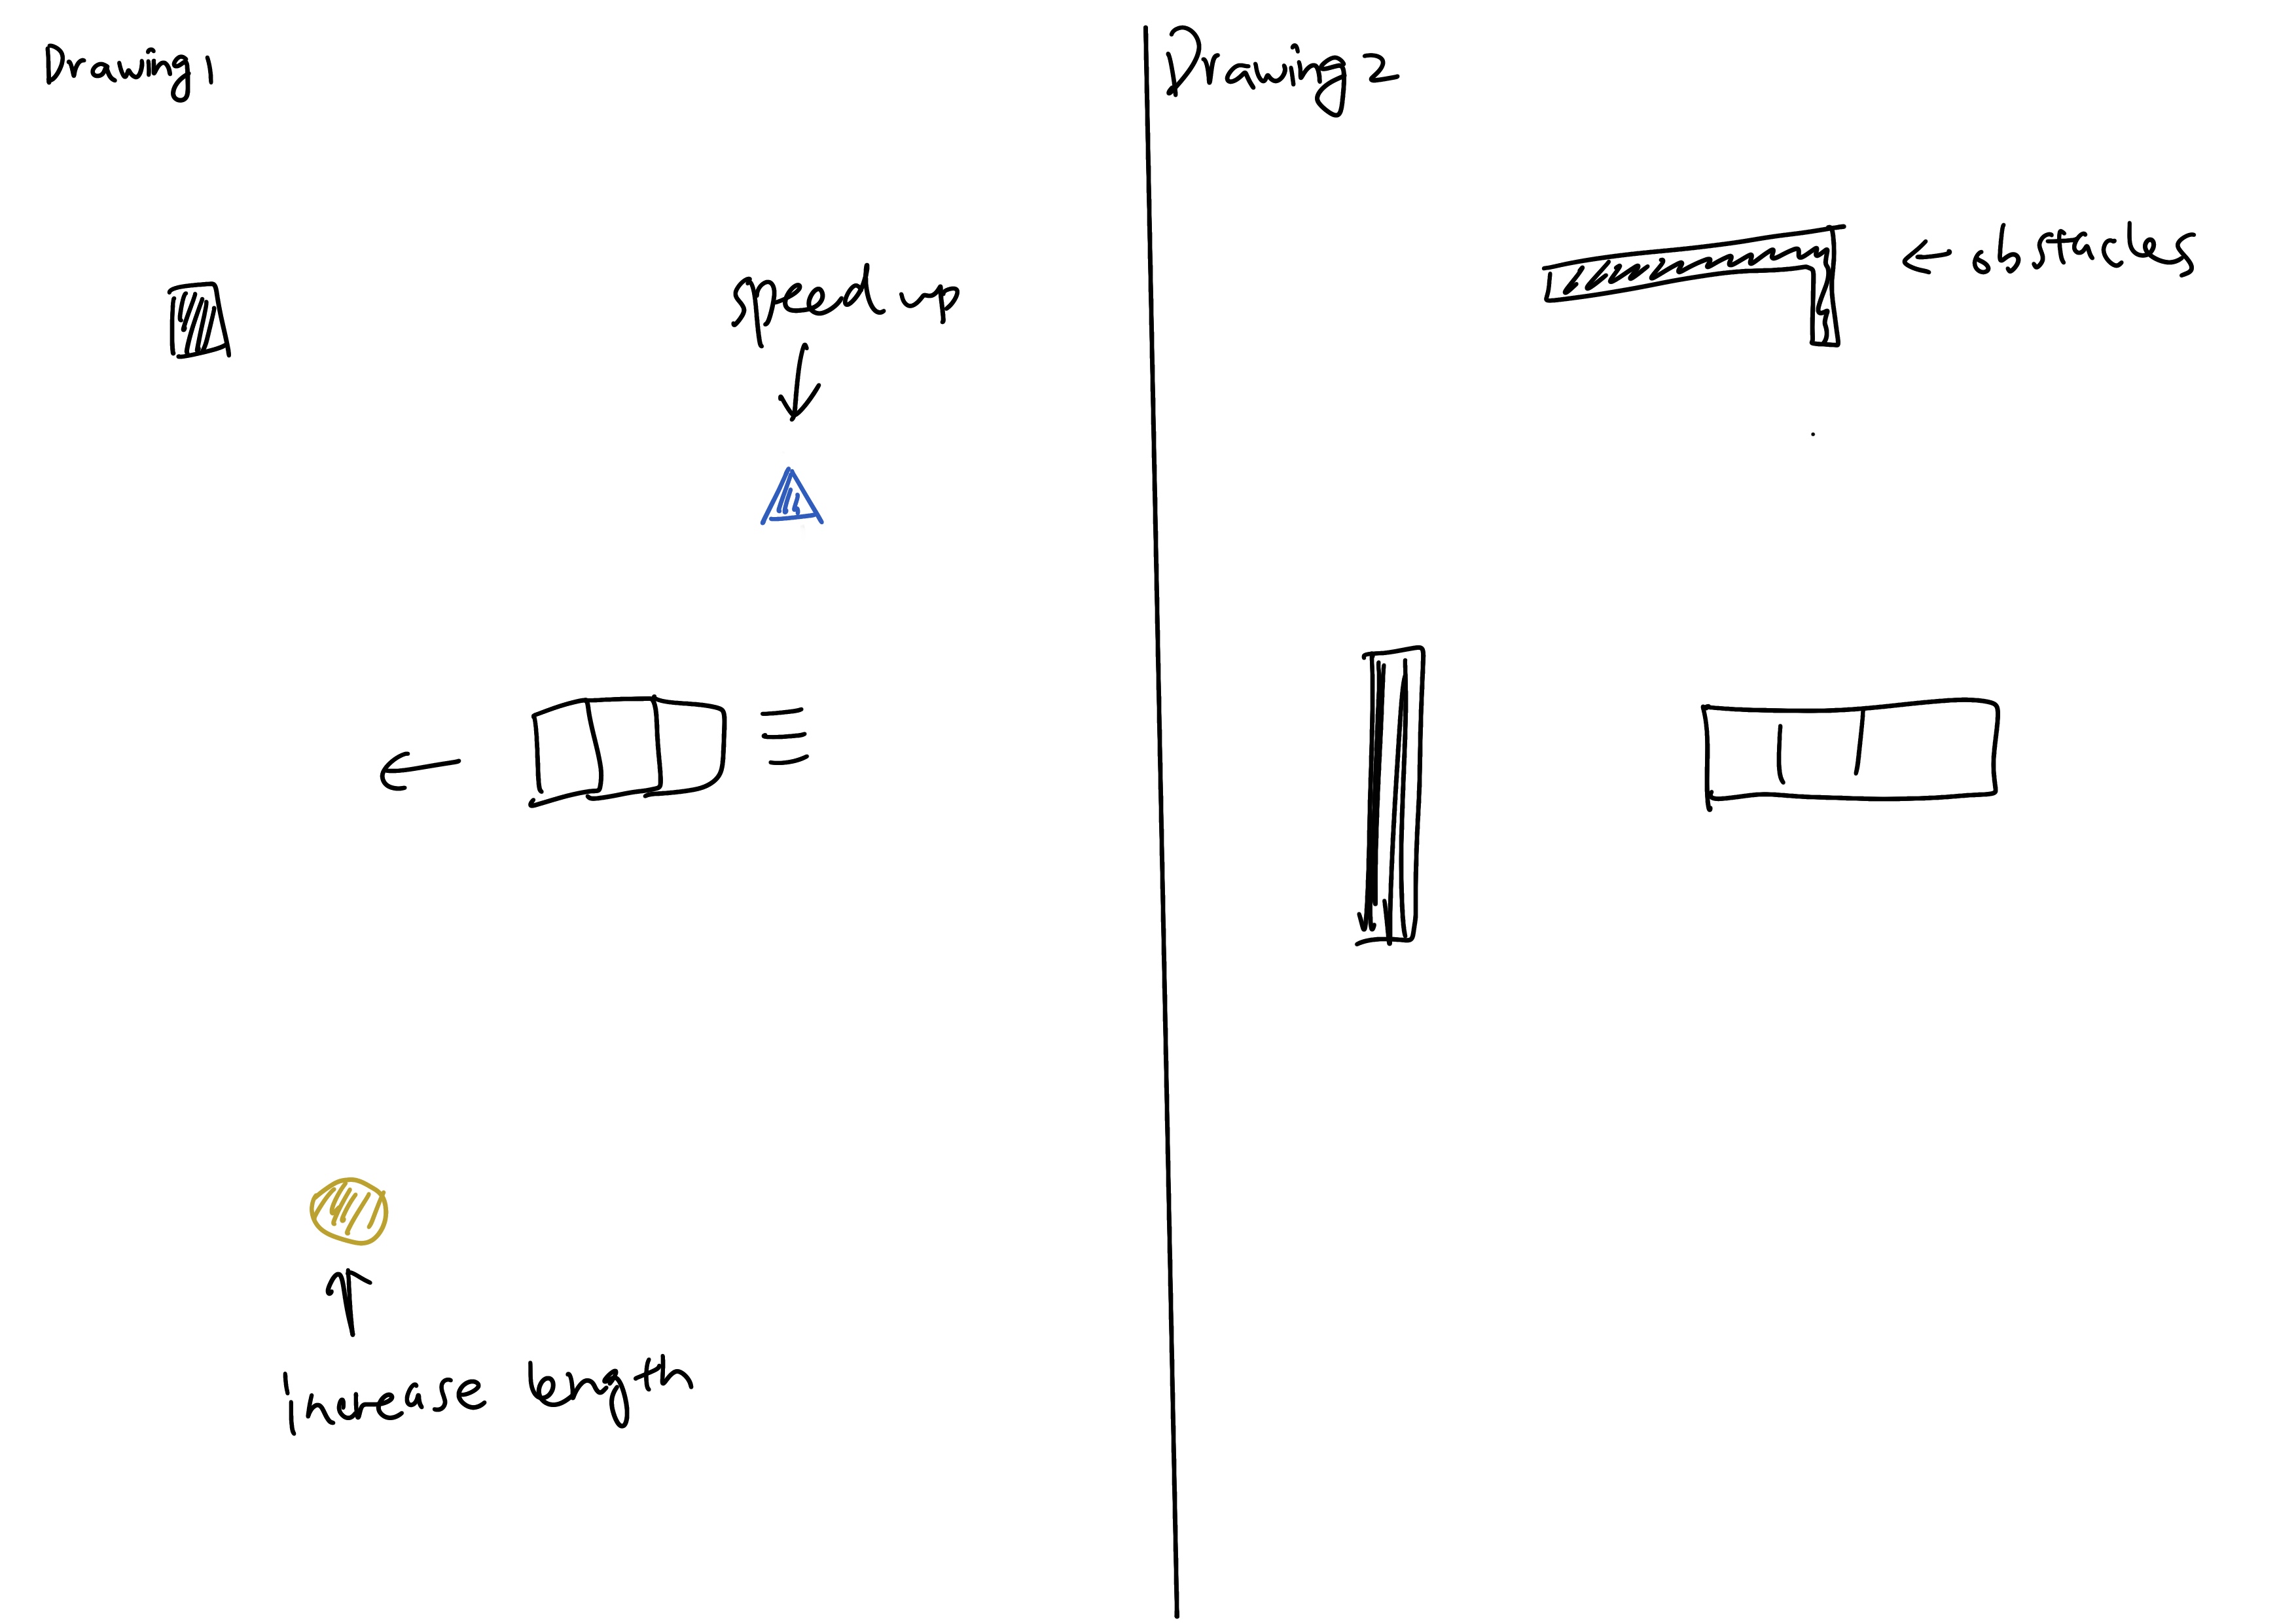 Drawing 1
speed up
increase length
Drawing 2
← obstacles